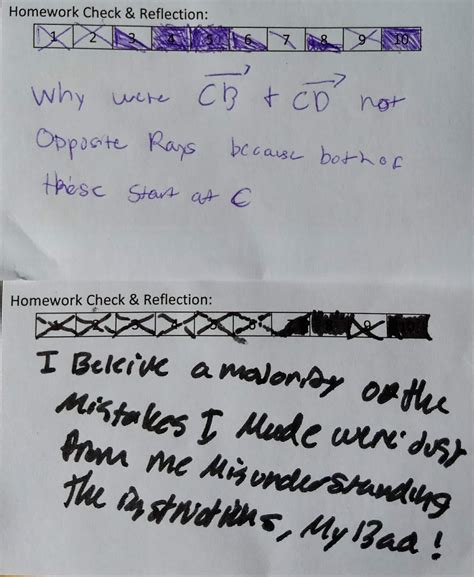 Homework Check & Reflection:
1 2 3 4 5 6 7 8 9 10
Why were CB + CD not
Opposite Rays because both of
these start at C
Homework Check & Reflection:
1 2 3 4 5 6 9
I Beleive a majority of the
Mistakes I Made were just
from me Misunderstanding
The instructions, My Bad!